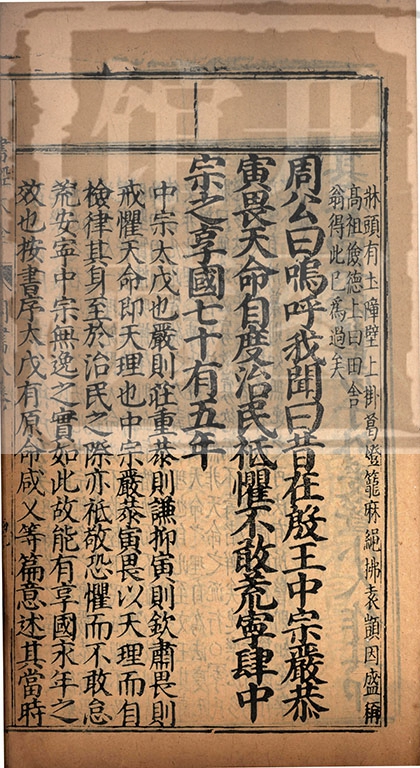 牀頭有土障壁上掛葛燈籠麻繩拂袁顗因盛稱
高祖儉德上曰田舍
翁得此巳為過矣
周公曰嗚呼我聞曰昔在殷王中宗嚴恭
寅畏天命自度治民祗懼不敢荒寧肆中
宗之享國七十有五年
中宗太戊也嚴則莊重恭則謙抑寅則欽肅畏則
戒懼天命即天理也中宗嚴恭寅畏以天理而自
檢律其身至於治民之際亦祗敬恐懼而不敢怠
荒安寧中宗無逸之實如此故能有享國永年之
效也按書序太戊有原命咸乂等篇意述其當時